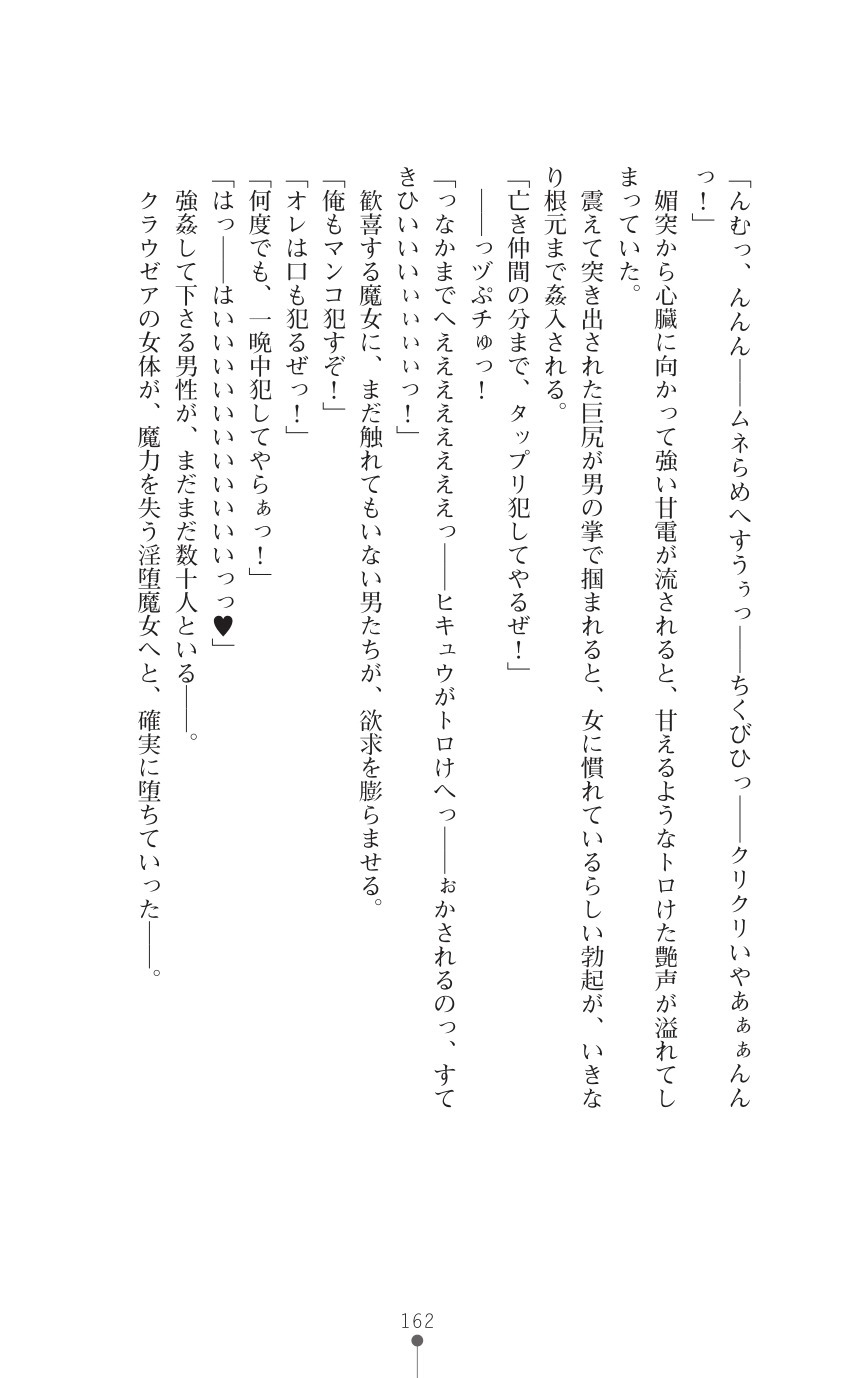 「んむっ、んんん――ムネらめへすうぅっ――ちくびひっ――クリクリいやあぁぁんん
っ！」
　媚突から心臓に向かって強い甘電が流されると、甘えるようなトロけた艶声が溢れてし
まっていた。
　震えて突き出された巨尻が男の掌で掴まれると、女に慣れているらしい勃起が、いきな
り根元まで姦入される。
「亡き仲間の分まで、タップリ犯してやるぜ！」
　――っヅぷチゅっ！
「っなかまでへええええええええっ――ヒキュウがトロけへっ――ぉかされるのっ、すて
きひいいいぃぃぃぃっ！」
　歓喜する魔女に、まだ触れてもいない男たちが、欲求を膨らませる。
「俺もマンコ犯すぞ！」
「オレは口も犯るぜっ！」
「何度でも、一晩中犯してやらぁっ！」
「はっ――はいいいいいいいいいいいっっ♥」
　強姦して下さる男性が、まだまだ数十人といる――。
　クラウゼアの女体が、魔力を失う淫堕魔女へと、確実に堕ちていった――。
162